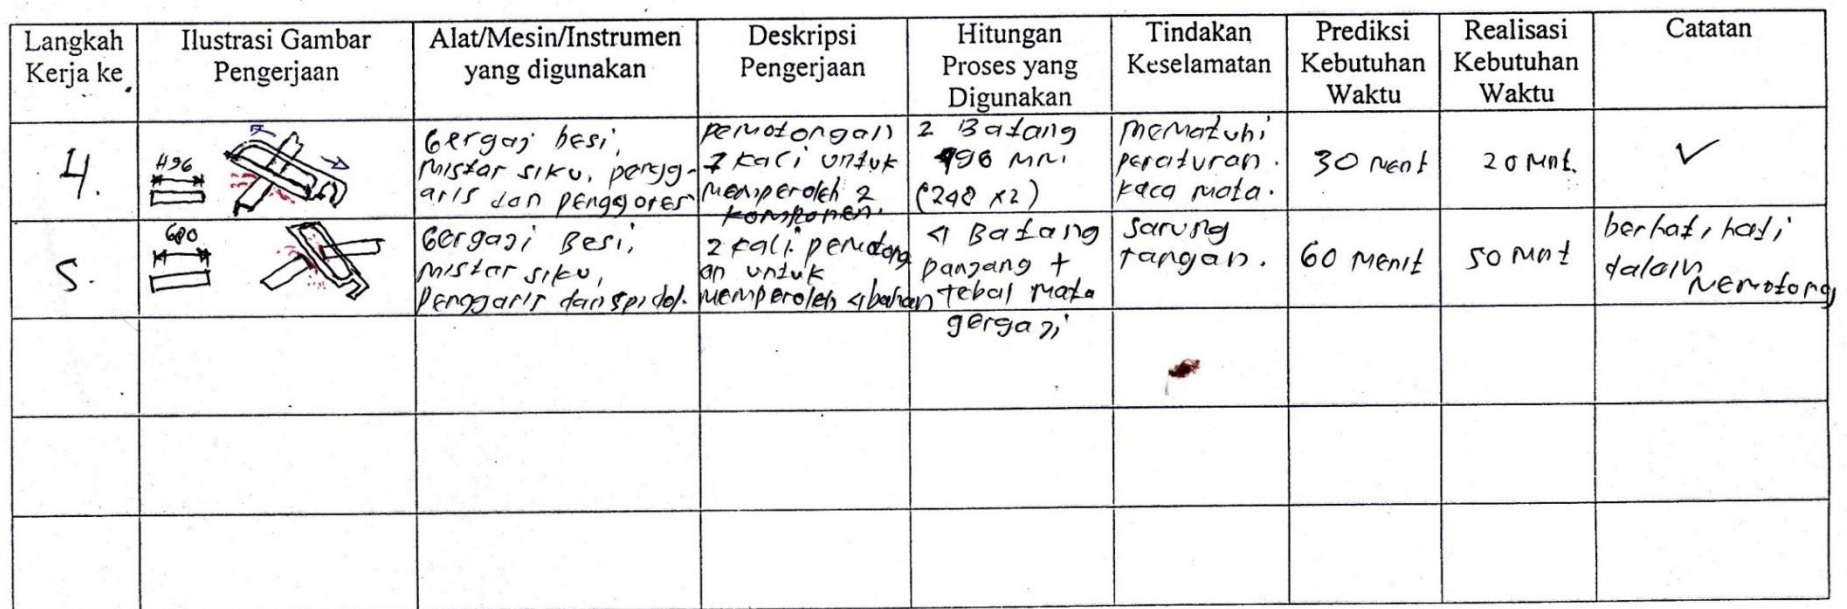 Langkah Kerja ke
Ilustrasi Gambar Pengerjaan
Alat/Mesin/Instrumen yang digunakan
Deskripsi Pengerjaan
Hitungan Proses yang Digunakan
Tindakan Keselamatan
Prediksi Kebutuhan Waktu
Realisasi Kebutuhan Waktu
Catatan
4.
496
Gergaj besi,
mistar siku, pengg-
aris dan penggores
pemotongan
1 kali untuk
memperoleh 2
komponen.
2 Batang
496 mm
(248 x2)
mematuhi
peraturan.
kaca mata.
30 menit
20 mnt.
✓
5.
600
Gergaji Besi,
mistar siku,
Penggaris dan spidol.
2 kali pemotong
an untuk
memperoleh 4 bahan
4 Batang
panjang +
tebal mata
gergaji
sarung
tangan.
60 menit
50 mnt
berhati, hati,
dalam
memotong